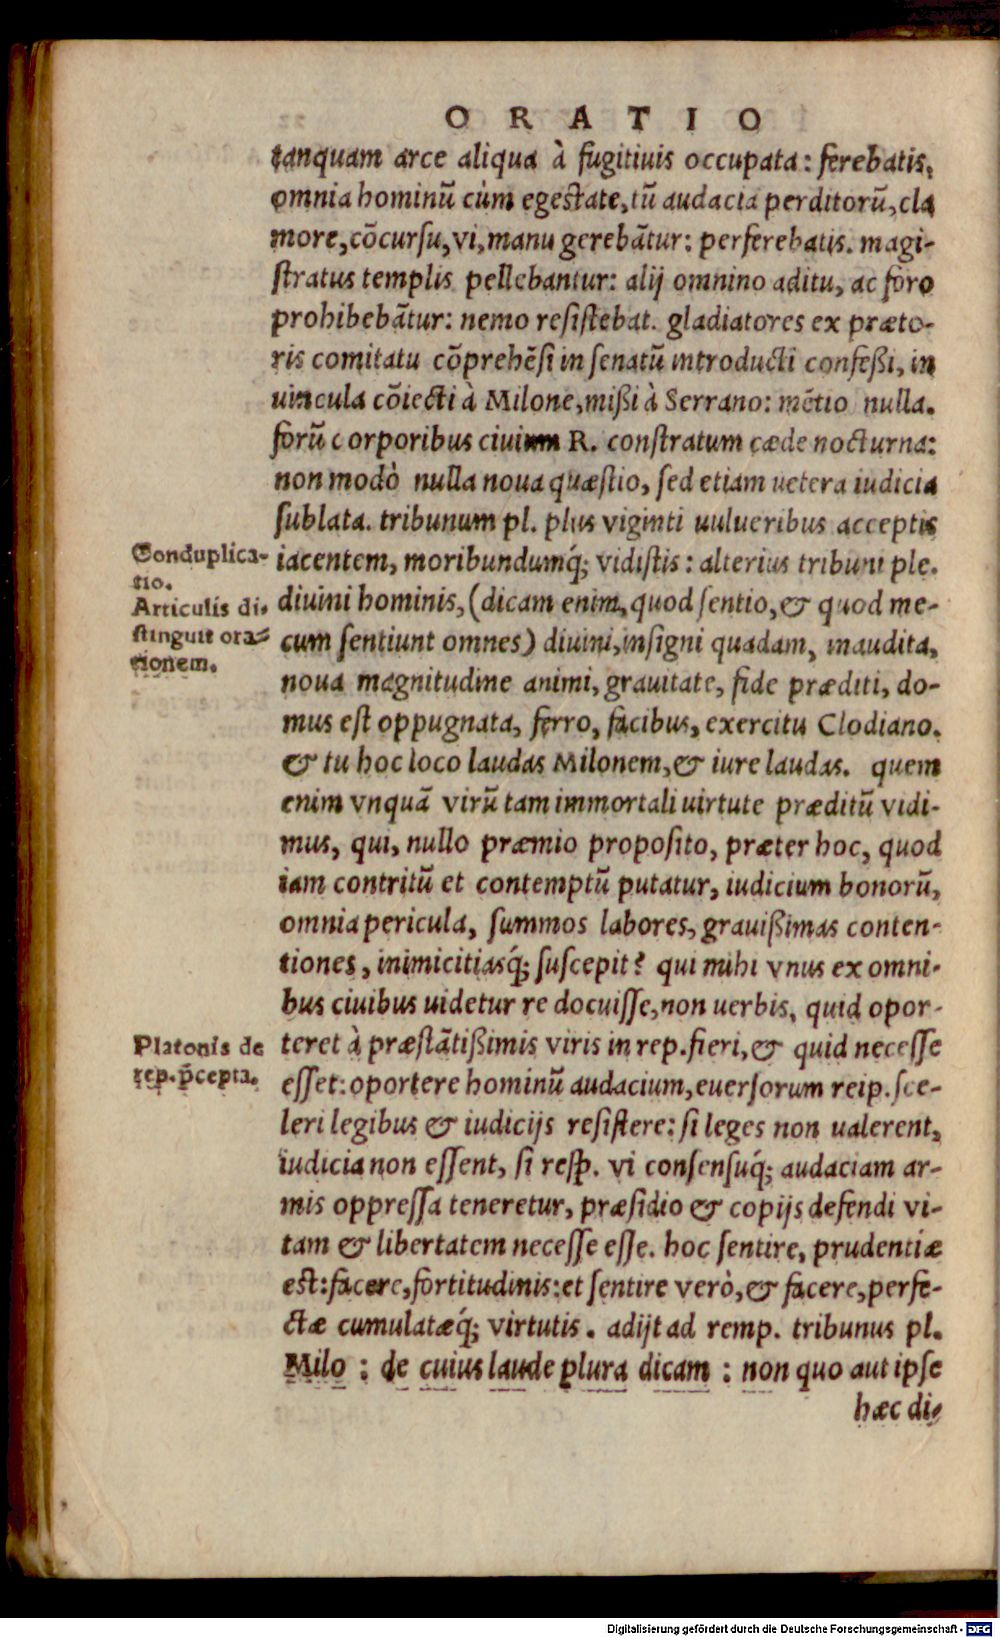 ORATIO
tanquam arce aliqua à fugitiuis occupata: ferebatis.
omnia hominũ cùm egestate, tũ audacia perditorũ, cla
more, cõcursu, vi, manu gerebãtur: perferebatis. magi-
stratus templis pellebantur: alij omnino aditu, ac foro
prohibebãtur: nemo resistebat. gladiatores ex præto-
ris comitatu cõprehẽsi in senatũ introducti confeßi, in
uincula cõiecti à Milone, mißi à Serrano: mẽtio nulla.
forũ corporibus ciuium R. constratum cæde nocturna:
non modò nulla noua quæstio, sed etiam uetera iudicia
sublata. tribunum pl. plus viginti uulueribus acceptis
Conduplica-
tio.
iacentem, moribundumq́; vidistis: alterius tribuni ple.
Articulis di-
stinguit ora-
tionem.
diuini hominis, (dicam enim, quod sentio, & quod me-
cum sentiunt omnes) diuini, insigni quadam, inaudita,
noua magnitudine animi, grauitate, fide præditi, do-
mus est oppugnata, ferro, facibus, exercitu Clodiano.
& tu hoc loco laudas Milonem, & iure laudas. quem
enim vnquã virũ tam immortali uirtute præditũ vidi-
mus, qui, nullo præmio proposito, præter hoc, quod
iam contritũ et contemptũ putatur, iudicium bonorũ,
omnia pericula, summos labores, grauißimas conten-
tiones, inimicitiasq́; suscepit? qui mihi vnus ex omni-
bus ciuibus uidetur re docuisse, non uerbis, quid opor-
Platonis de
rep. p̃cepta.
teret à præstãtißimis viris in rep. fieri, & quid necesse
esset: oportere hominũ audacium, euersorum reip. sce-
leri legibus & iudicijs resistere: si leges non ualerent,
iudicia non essent, si resp. vi consensuq́; audaciam ar-
mis oppressa teneretur, præsidio & copijs defendi vi-
tam & libertatem necesse esse. hoc sentire, prudentiæ
est: facere, fortitudinis: et sentire verò, & facere, perfe-
ctæ cumulatæq́; virtutis. adijt ad remp. tribunus pl.
Milo : de cuius laude plura dicam : non quo aut ipse
hæc di-
Digitalisierung gefördert durch die Deutsche Forschungsgemeinschaft - DFG